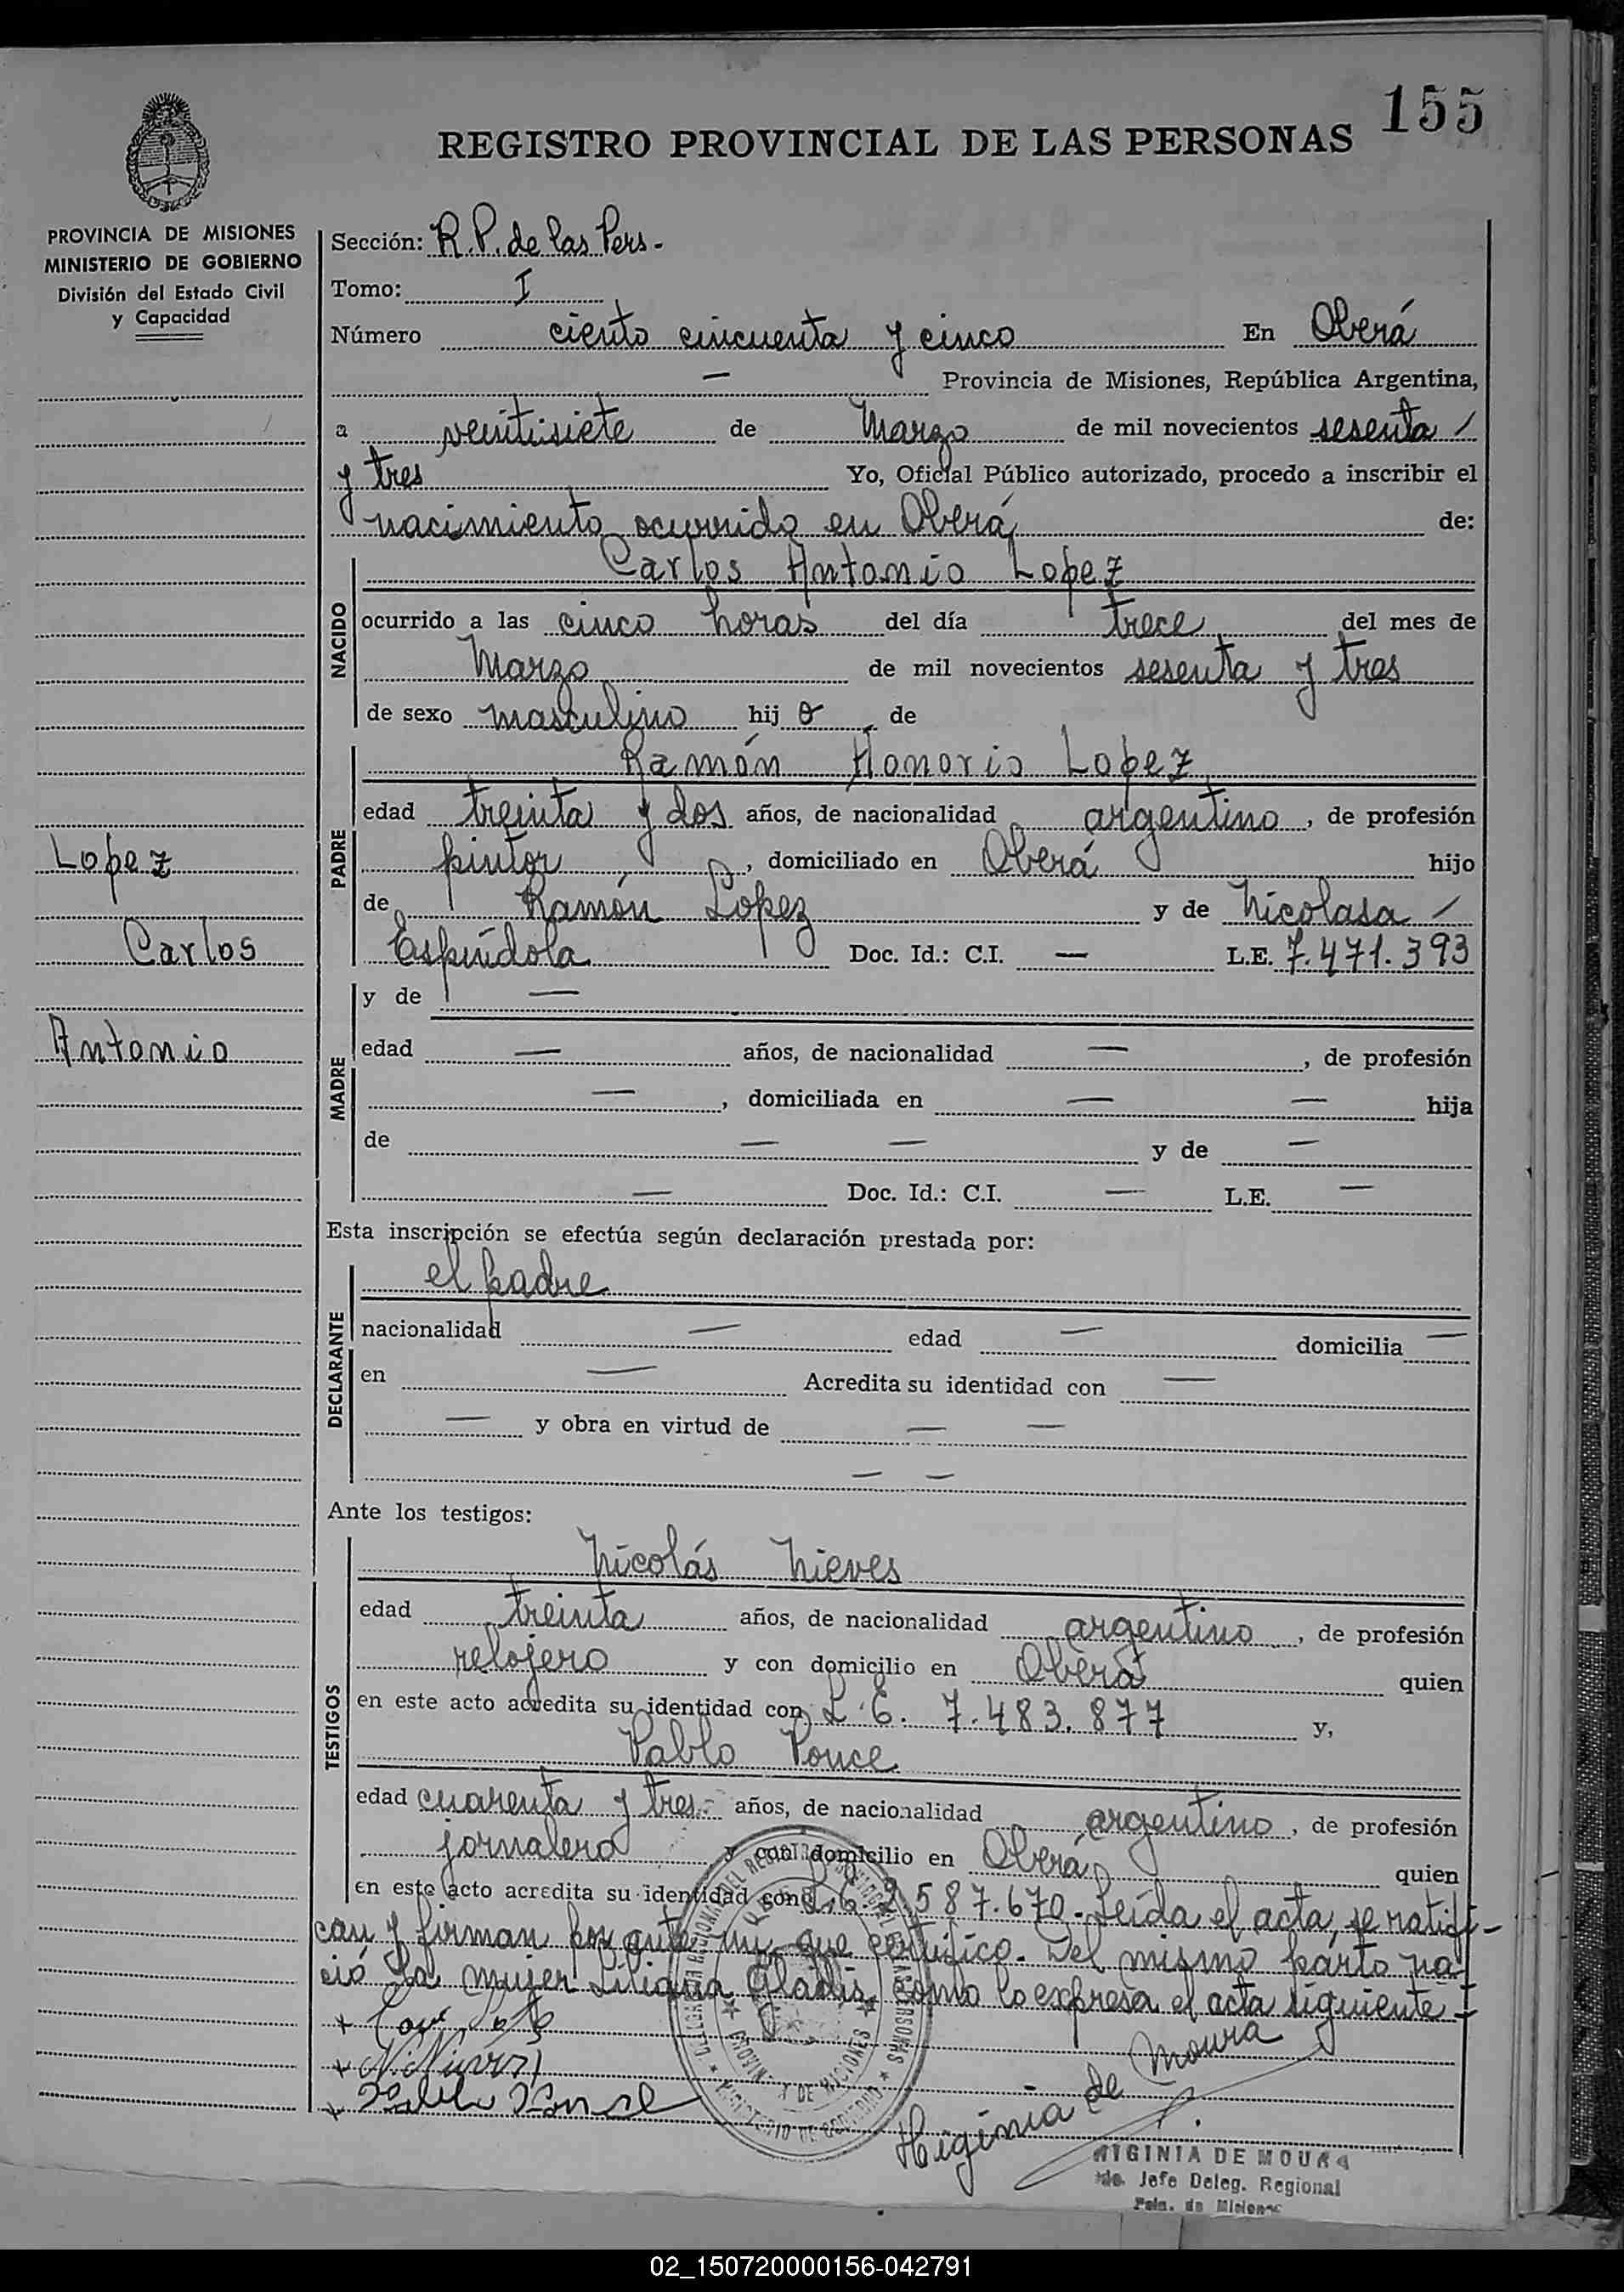 155
REGISTRO PROVINCIAL DE LAS PERSONAS
PROVINCIA DE MISIONES
MINISTERIO DE GOBIERNO
División del Estado Civil
y Capacidad
Lopez
Carlos
Antonio
Sección: R.P. de las Pers.-
Tomo: I
Número ciento cincuenta y cinco En Oberá
— Provincia de Misiones, República Argentina,
a veintisiete de Marzo de mil novecientos sesenta /
y tres Yo, Oficial Público autorizado, procedo a inscribir el
nacimiento ocurrido en Oberá de:
NACIDO
Carlos Antonio Lopez
ocurrido a las cinco horas del día trece del mes de
Marzo de mil novecientos sesenta y tres
de sexo masculino hij o de
PADRE
Ramón Honorio Lopez
edad treinta y dos años, de nacionalidad argentino, de profesión
pintor, domiciliado en Oberá hijo
de Ramón Lopez y de Nicolasa /
Espíndola Doc. Id.: C.I. — L.E. 7.471.393
MADRE
y de —
edad — años, de nacionalidad —, de profesión
—, domiciliada en — — hija
de — — y de —
— Doc. Id.: C.I. — L.E. —
Esta inscripción se efectúa según declaración prestada por:
DECLARANTE
el padre
nacionalidad — edad — domicilia —
en — Acredita su identidad con —
— y obra en virtud de — —
— —
Ante los testigos:
TESTIGOS
Nicolás Nieves
edad treinta años, de nacionalidad argentino, de profesión
relojero y con domicilio en Oberá quien
en este acto acredita su identidad con L.E. 7.483.877 y,
Pablo Ponce
edad cuarenta y tres.- años, de nacionalidad argentino, de profesión
jornalero y con domicilio en Oberá quien
en este acto acredita su identidad con L.E. 2.587.670.- Leída el acta, se ratifi-
can y firman por ante mi, que certifico. Del mismo parto na-
ció la mujer Liliana Gladis, como lo expresa el acta siguiente.-
N. Nieves
Pablo Ponce
Higinia de Moura
HIGINIA DE MOURA
Jefe Deleg. Regional
Pcia. de Misiones
PROVINCIA DE MISIONES
MINISTERIO DE GOBIERNO
02_150720000156-042791